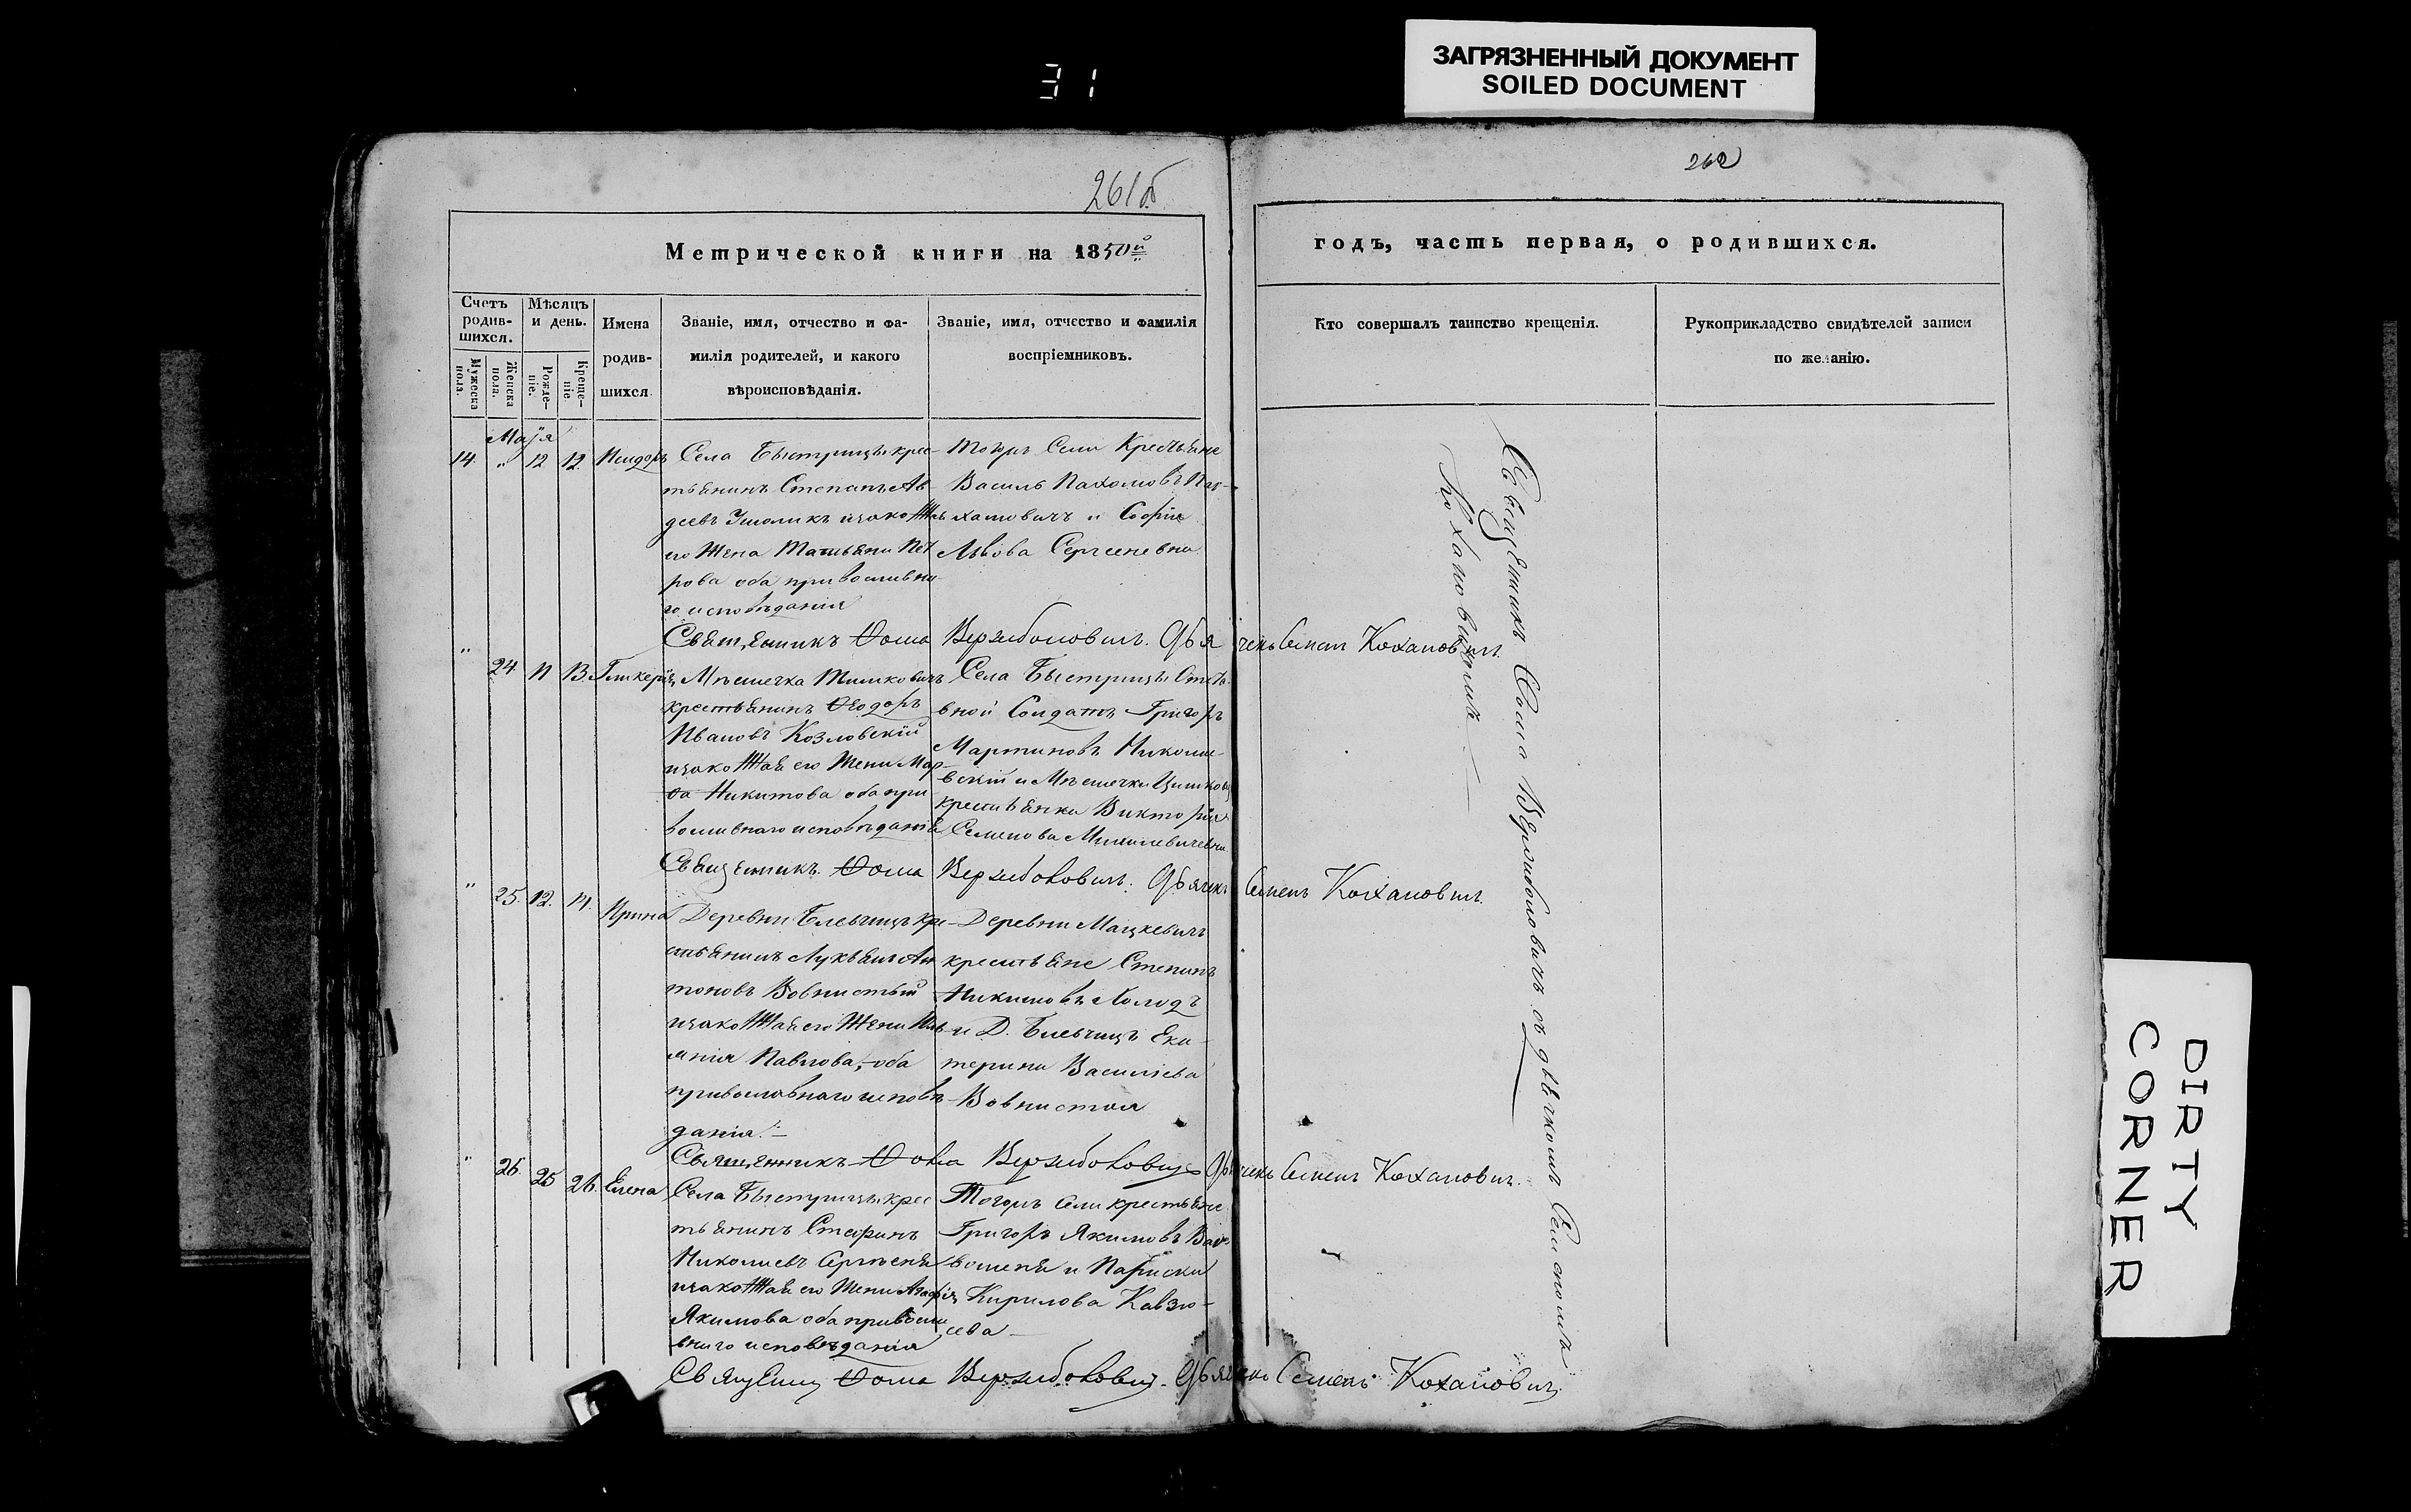 31
ЗАГРЯЗНЕННЫЙ ДОКУМЕНТ
SOILED DOCUMENT
261б
262
Метрической книги на 1850й
годъ, часть первая, о родившихся.
Счетъ родив-шихся.
Мужеска пола.
Женска пола.
Мѣсяцъ и день.
Рожде-ніе.
Креще-ніе.
Имена родив-шихся
Званіе, имя, отчество и фа-
милія родителей, и какого
вѣроисповѣданія.
Званіе, имя, отчество и фамилія
воспріемниковъ.
Кто совершалъ таинство крещенія.
Рукоприкладство свидѣтелей записи
по желанію.
Маія
14 " 12 12 Исидоръ
Села Быстрицы крес-
тьянинъ Степанъ Ав
деевъ
его жена Татьяна Пет
рова оба православна-
го исповѣданія
Тогожъ Села Крестьяне
Василь Пахомовъ
и Софія
Львова
Священникъ Ѳома Вержболовичъ. Дьячекъ Семенъ Кохановичъ.
" 24 11 13 Гликерія
Мѣстечка
крестьянинъ Ѳеодоръ
Ивановъ Козловскій
изаконная его жена Мар
ѳа Никитова оба пра
вославнаго исповѣданія
Села Быстрицы
Солдатъ Григоръ
Мартиновъ
и Мѣстечка
крестьянка Викторія
Семенова
Священникъ Ѳома Вержболовичъ. Дьячекъ Семенъ Кохановичъ.
" 25. 12. 14. Ирина
Деревни Блевчицъ кре-
стьянинъ Лукьянъ Ан
тоновъ Вовнистый
изаконная его жена
Павлова, оба
православнаго исповѣ-
данія.
Деревни Мацкевичъ
крестьяне Степанъ
Никитовъ Холодъ
и Д. Блевчицъ Ека-
терина Василіева
Вовнистая
Священникъ Ѳома Вержболовичъ Дьячекъ Семенъ Кохановичъ.
" 26. 25 26. Елена
Села Быстрицы крес
тьянинъ Стефанъ
Николаевъ
изаконная его жена Агафія
Якимова оба правосла
внаго исповѣданія
Тогожъ села крестьяне
Григоръ Якимовъ
и Параска
Кирилова
Священ Ѳома Вержболович. Дьячекъ Семенъ Кохановичъ
Священникъ Ѳома Вержболовичъ съ дьячкомъ Семеномъ
Кохановичемъ
DIRTY
CORNER